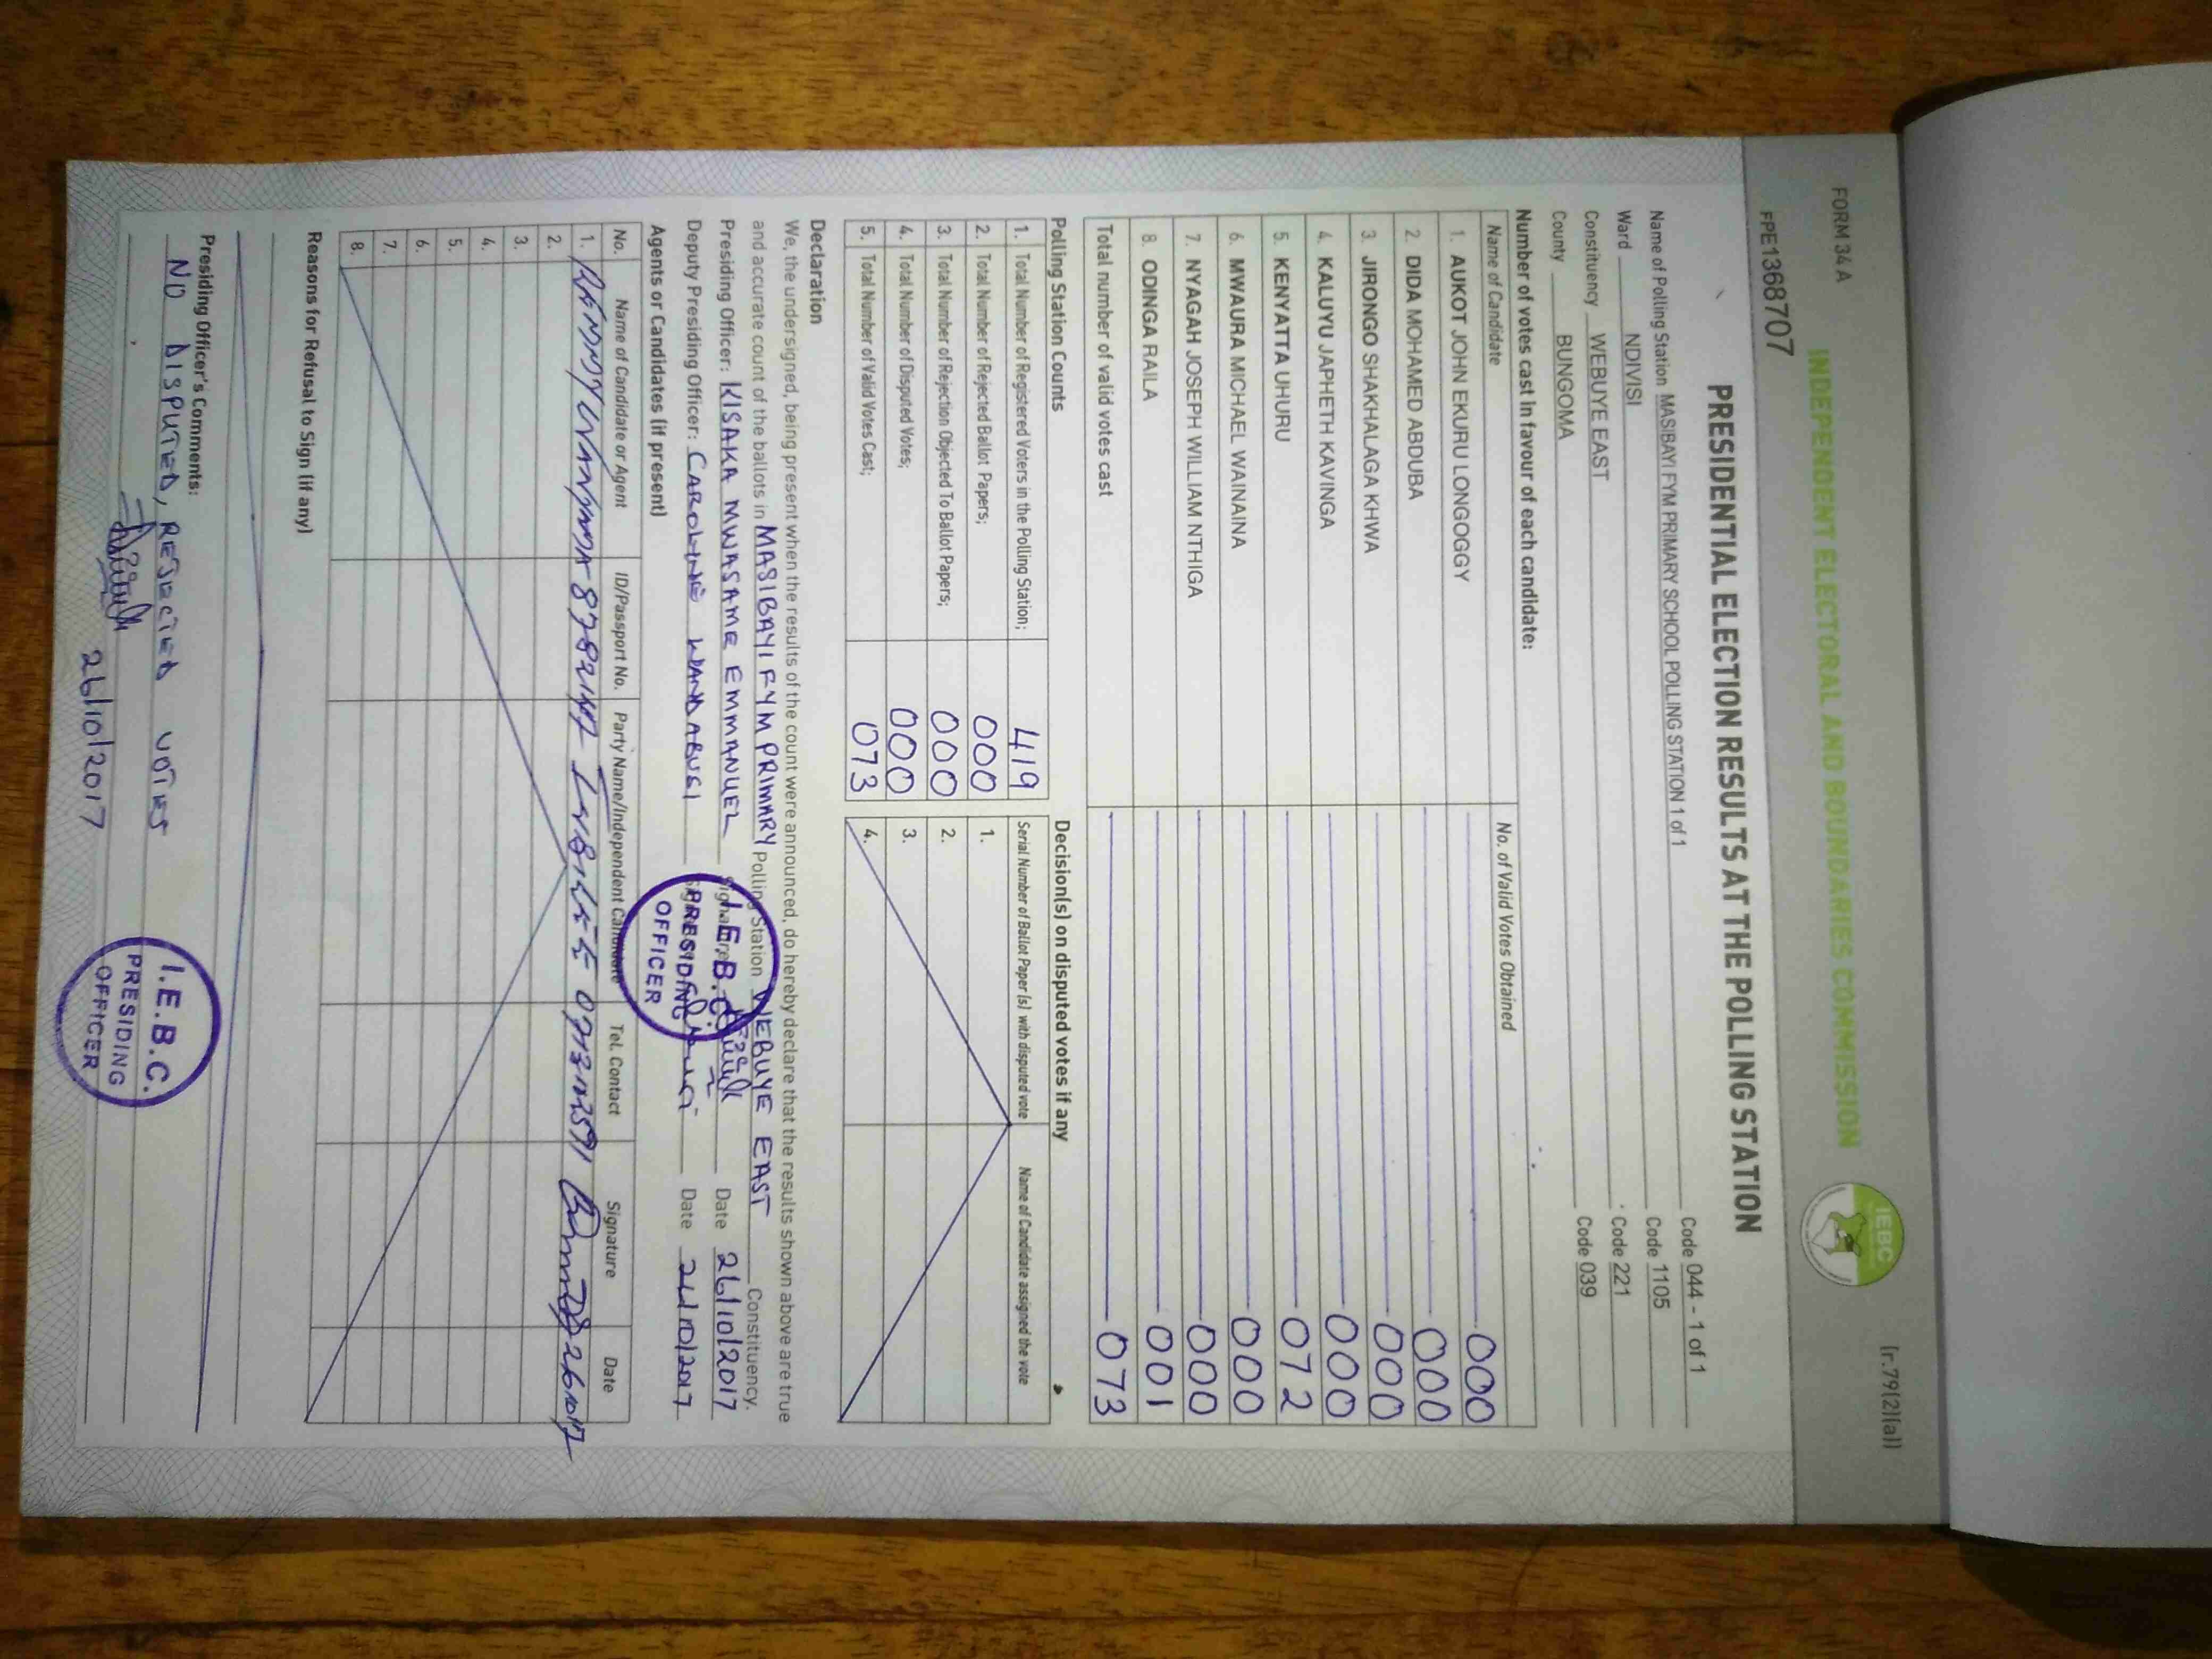 FORM 34 A
[r.79(2)(a)]
INDEPENDENT ELECTORAL AND BOUNDARIES COMMISSION
IEBC
FPE1368707
PRESIDENTIAL ELECTION RESULTS AT THE POLLING STATION
Name of Polling Station MASIBAYI FYM PRIMARY SCHOOL POLLING STATION 1 of 1 Code 044 - 1 of 1
Ward NDIVISI Code 1105
Constituency WEBUYE EAST Code 221
County BUNGOMA Code 039
Number of votes cast in favour of each candidate:
Name of Candidate No. of Valid Votes Obtained
1. AUKOT JOHN EKURU LONGOGGY 000
2. DIDA MOHAMED ABDUBA 000
3. JIRONGO SHAKHALAGA KHWA 000
4. KALUYU JAPHETH KAVINGA 000
5. KENYATTA UHURU 072
6. MWAURA MICHAEL WAINAINA 000
7. NYAGAH JOSEPH WILLIAM NTHIGA 000
8. ODINGA RAILA 001
Total number of valid votes cast 073
Polling Station Counts
1. Total Number of Registered Voters in the Polling Station; 419
2. Total Number of Rejected Ballot Papers; 000
3. Total Number of Rejection Objected To Ballot Papers; 000
4. Total Number of Disputed Votes; 000
5. Total Number of Valid Votes Cast; 073
Decision(s) on disputed votes if any
Serial Number of Ballot Paper (s) with disputed vote Name of Candidate assigned the vote
1.
2.
3.
4.
Declaration
We, the undersigned, being present when the results of the count were announced, do hereby declare that the results shown above are true
and accurate count of the ballots in MASIBAYI FYM PRIMARY Polling Station WEBUYE EAST Constituency.
Presiding Officer: KISAKA MWASAME EMMANUEL Signature Date 26/10/2017
Deputy Presiding Officer: CAROLINE WANDABUSI Date 26/10/2017
I.E.B.C.
PRESIDING
OFFICER
Agents or Candidates (if present)
No. Name of Candidate or Agent ID/Passport No. Party Name/Independent Candidate Tel. Contact Signature Date
1.
2.
3.
4.
5.
6.
7.
8.
Reasons for Refusal to Sign (if any)
Presiding Officer's Comments:
NO DISPUTED, REJECTED VOTES
26/10/2017
I.E.B.C.
PRESIDING
OFFICER